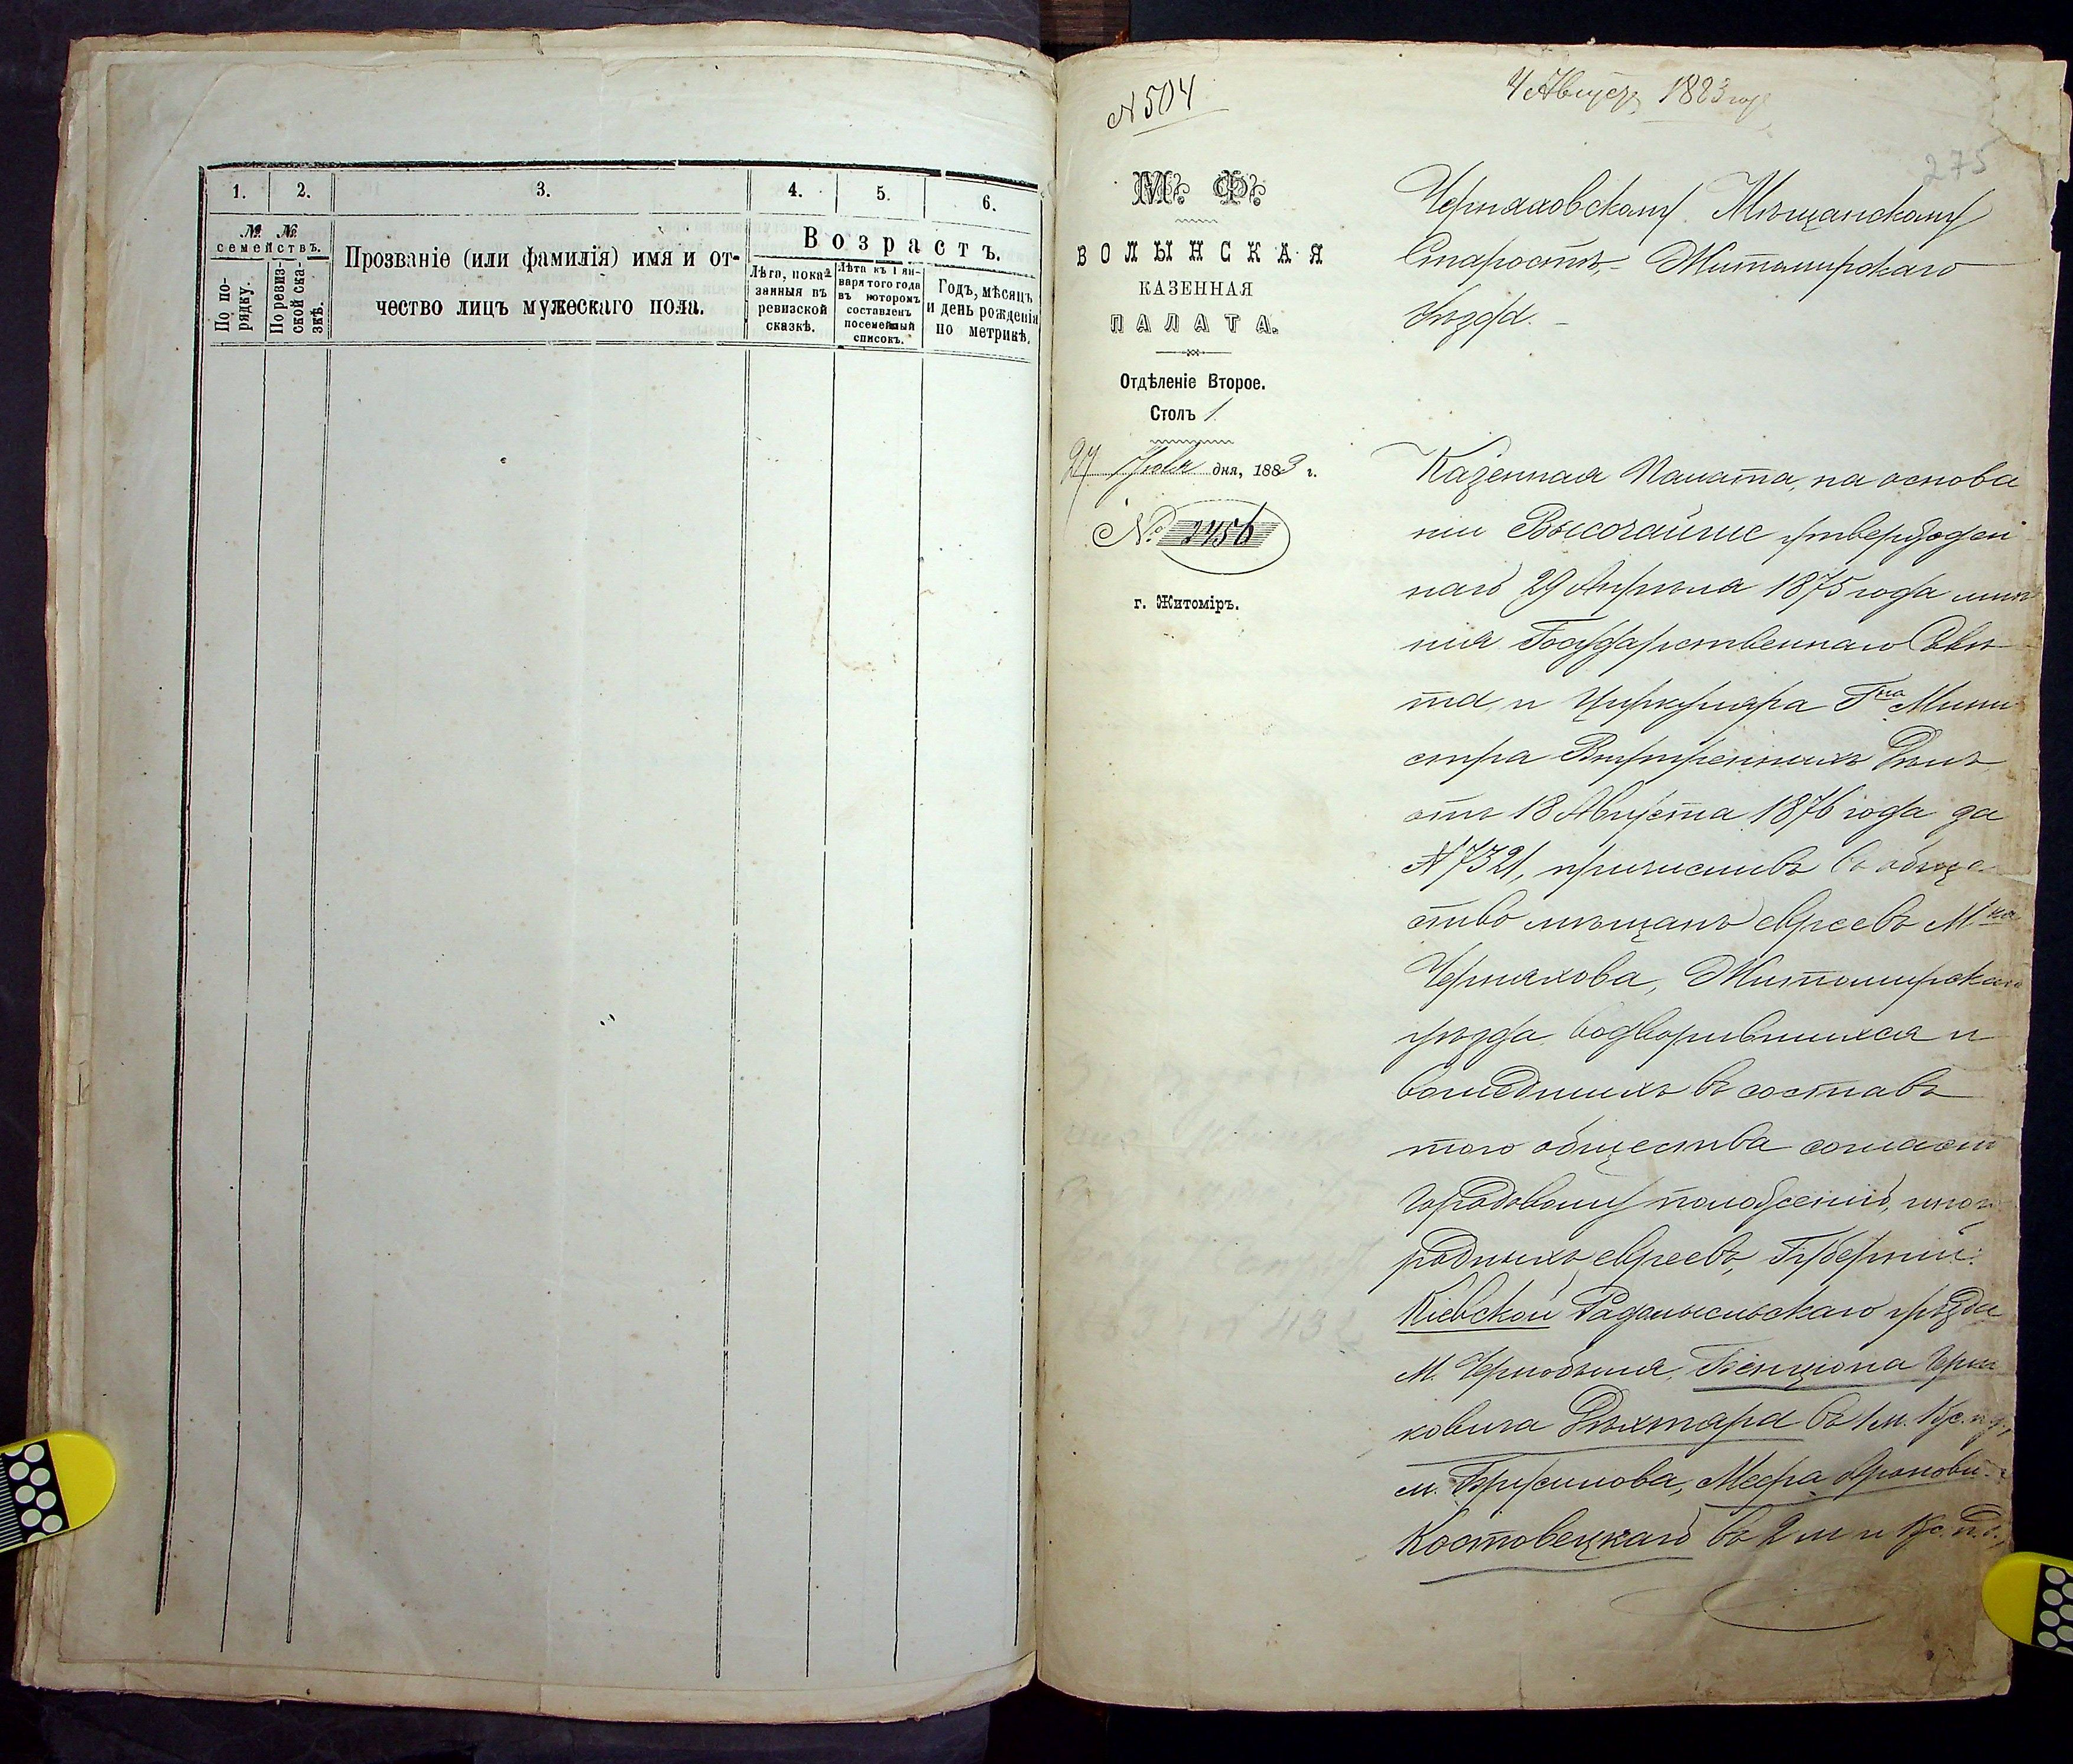 1.
2.
3.
4.
5.
6.
№. №.
семействъ.
По по-
рядку.
По ревиз-
ской ска-
зкѣ.
Прозваніе (или фамилія) имя и от-
чество лицъ мужескаго пола.
Возрастъ.
Лѣта, пока-
занныя въ
ревизской
сказкѣ.
Лѣта къ 1 ян-
варя того года
въ котором
составленъ
посемейный
списокъ.
Годъ, мѣсяцъ
и день рожденія
по метрикѣ.
№ 504
4 Август 1883 год
275
М. Ф.
ВОЛЫНСКАЯ
КАЗЕННАЯ
ПАЛАТА.
Отдѣленіе Второе.
Столъ 1
27 Іюля дня, 1883 г.
№ 2456
г. Житоміръ.
Черняховскому Мѣщанскому
Старостѣ, Житомирскаго
Уѣзда.
Казенная Палата, на основа
ніи Высочайше утвержден
наго 29 Апрѣля 1875 года мнѣ
нія Государственнаго Совѣ
та и Циркуляра Гна Мини
стра Внутреннихъ Дѣлъ
отъ 18 Августа 1876 года за
№ 7321, причисливъ въ обще
ство мѣщанъ евреевъ Мка
Черняхова, Житомирскаго
уѣзда водворившихся и
вошедшихъ въ составъ
того общества согласно
Городовому положенію, иного
родныхъ евреевъ, Губерній:
Кіевской Радомысльскаго уѣзда
М. Чернобыля, Бенціона Герш
ковича Дѣхтяра въ 1 м. 1 ж. п. д.,
м. Брусилова, Меера Аронови
Костовецкаго въ 2 м и 1 ж. п. д.,